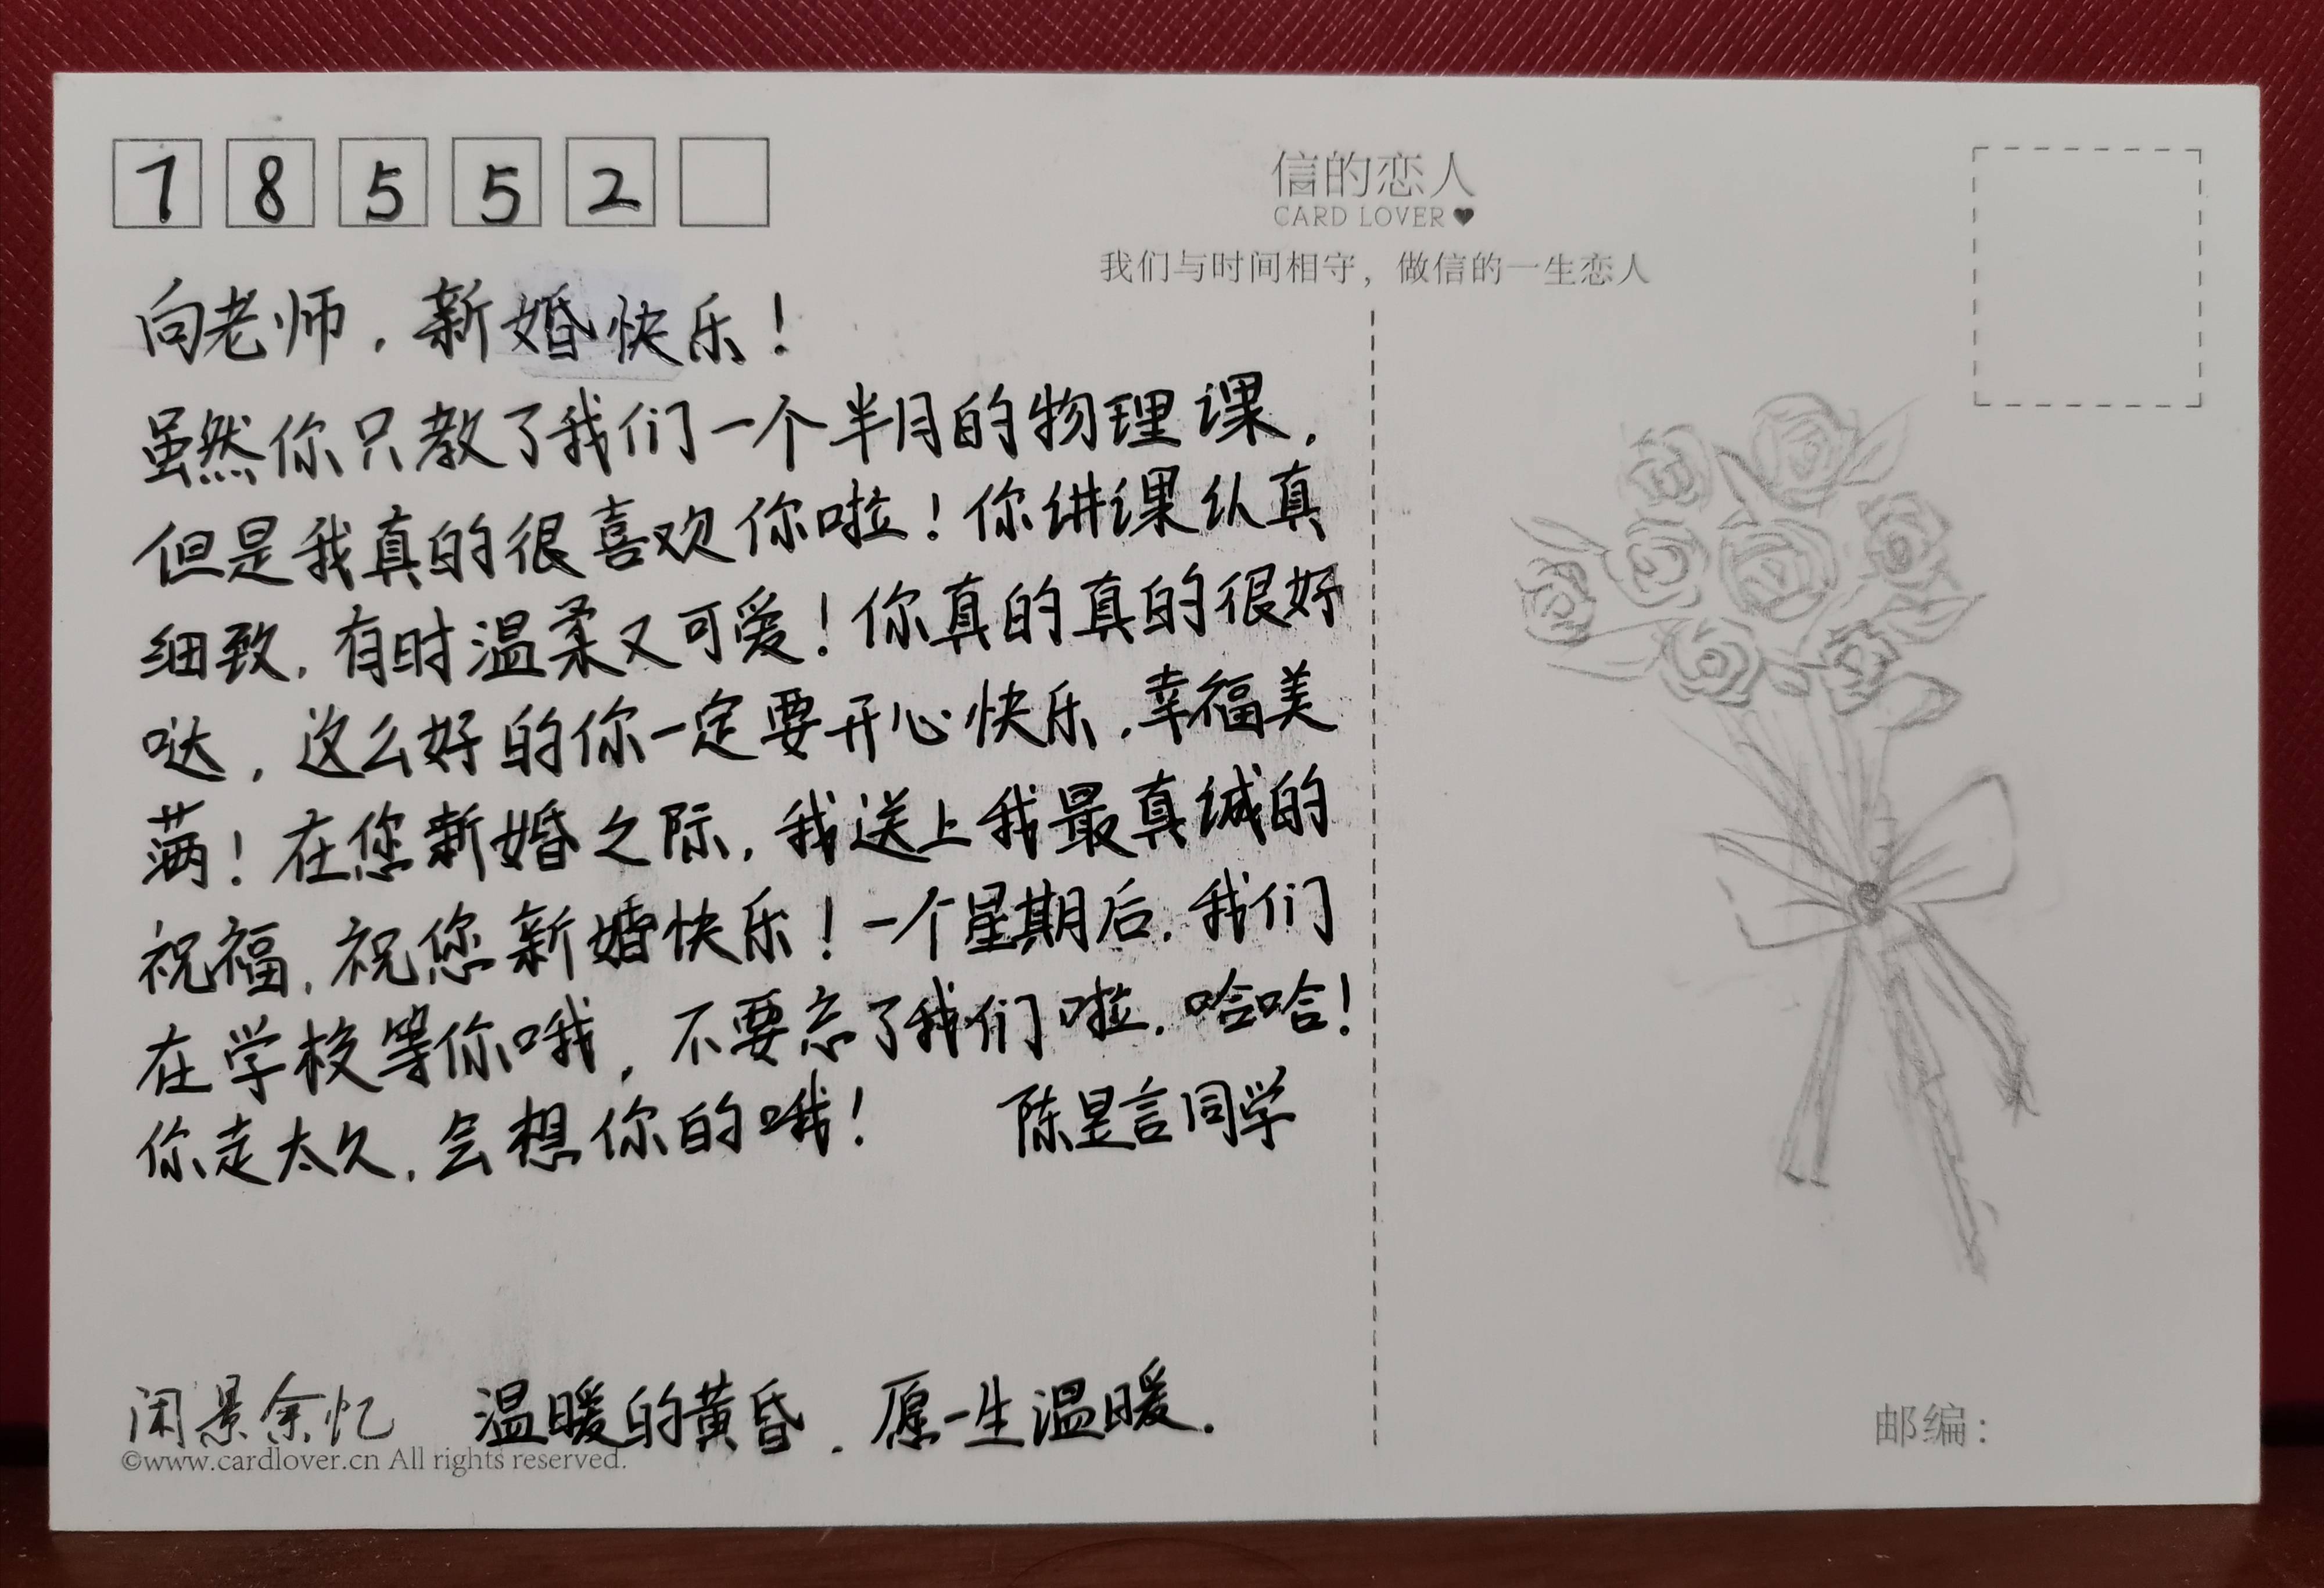 7 8 5 5 2
信的恋人
CARD LOVER
我们与时间相守，做信的一生恋人
向老师，新婚快乐！
虽然你只教了我们一个半月的物理课，
但是我真的很喜欢你啦！你讲课认真
细致，有时温柔又可爱！你真的真的很好
哒，这么好的你一定要开心快乐，幸福美
满！在您新婚之际，我送上我最真诚的
祝福，祝您新婚快乐！一个星期后，我们
在学校等你哦，不要忘了我们啦，哈哈！
你走太久，会想你的哦！ 陈昱言同学
闲景余忆 温暖的黄昏，愿一生温暖.
©www.cardlover.cn All rights reserved.
邮编：